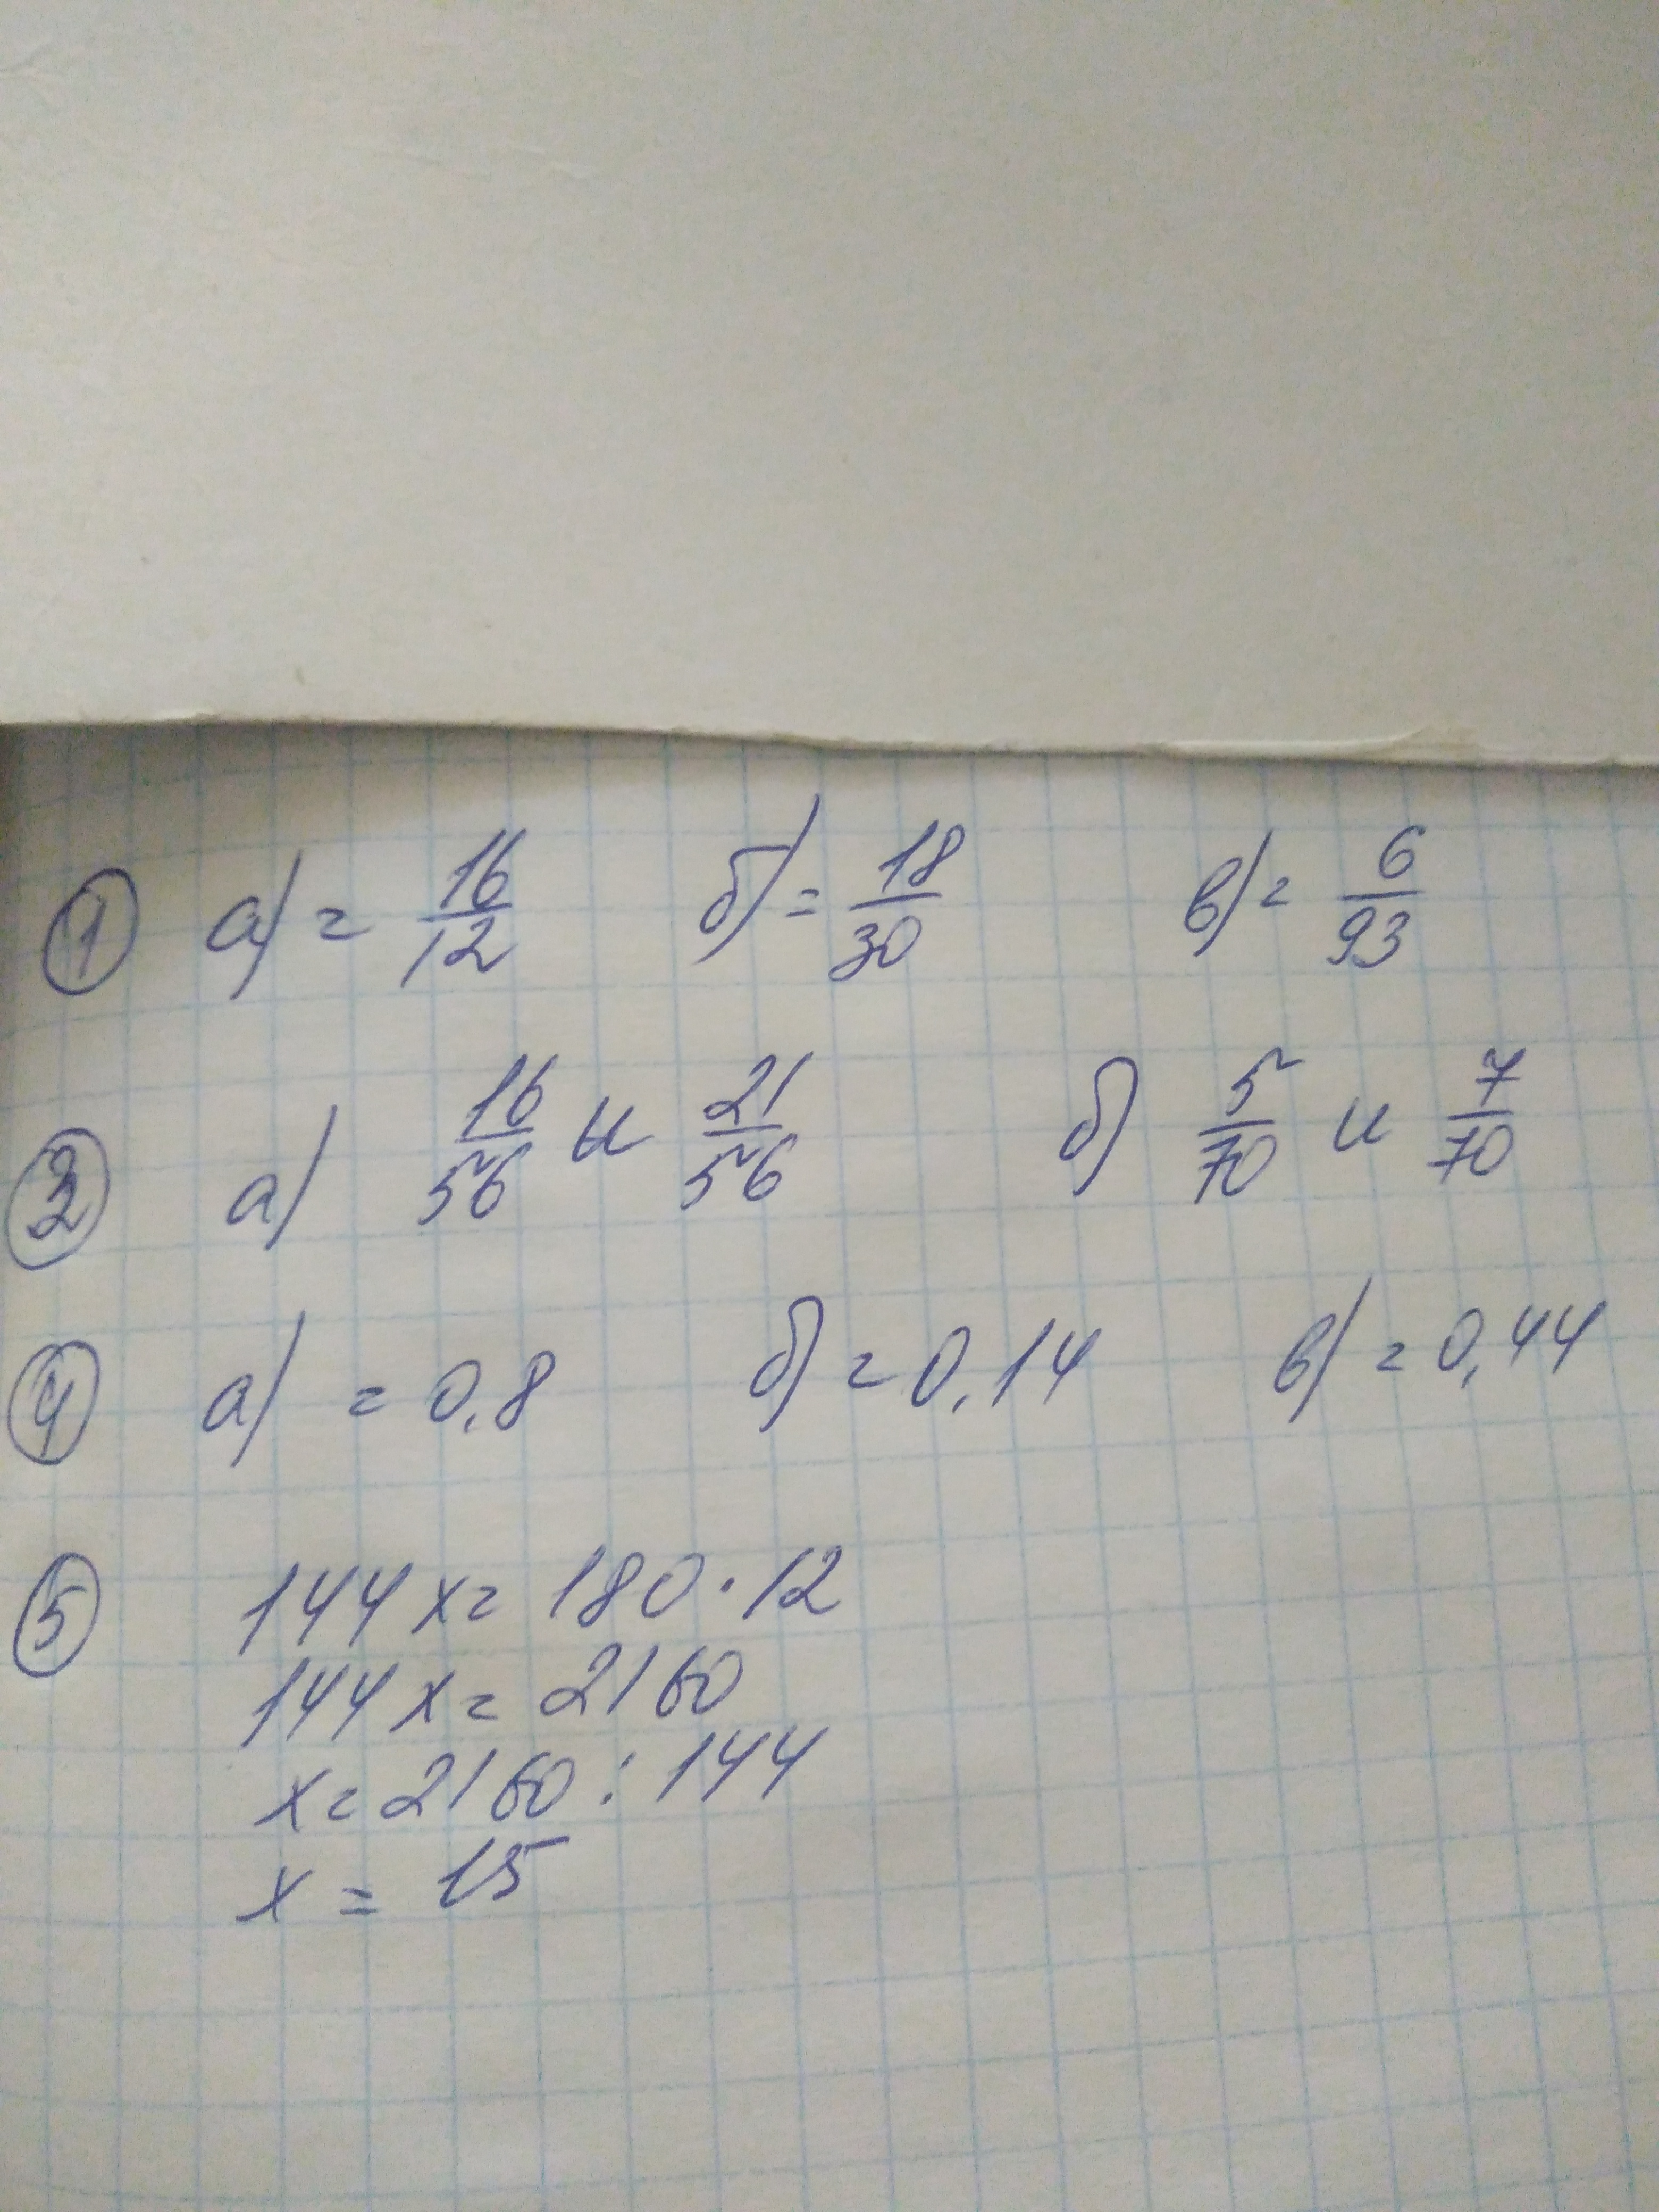 ① а) = 16/12 б) = 18/30 в) = 6/93
③ а) 16/56 и 21/56 б) 5/70 и 7/70
④ а) = 0,8 б) = 0,14 в) = 0,44
⑤ 144x = 180 · 12
144x = 2160
x = 2160 : 144
x = 15